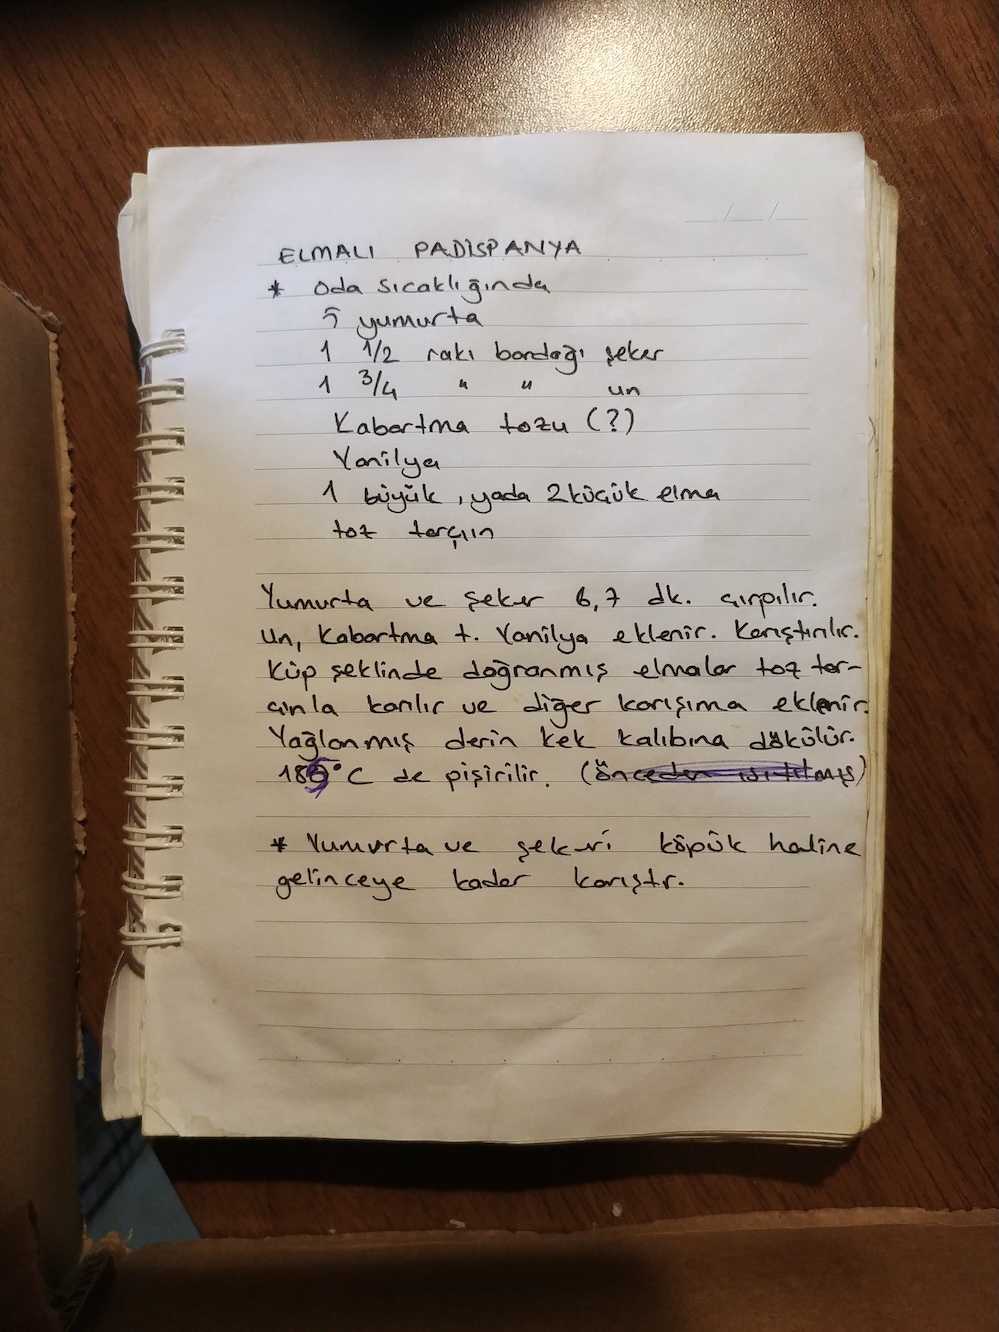 ELMALI PADİSPANYA
* Oda sıcaklığında
5 yumurta
1 1/2 rakı bardağı şeker
1 3/4 " " un
Kabartma tozu (?)
Vanilya
1 büyük, yada 2 küçük elma
toz tarçın
Yumurta ve şeker 6,7 dk. çırpılır.
Un, kabartma t. Vanilya eklenir. Karıştırılır.
Küp şeklinde doğranmış elmalar toz tar-
çınla karılır ve diğer karışıma eklenir.
Yağlanmış derin kek kalıbına dökülür.
°C de pişirilir. (önceden ısıtılmış)
* Yumurta ve şekeri köpük haline
gelinceye kadar karıştr.